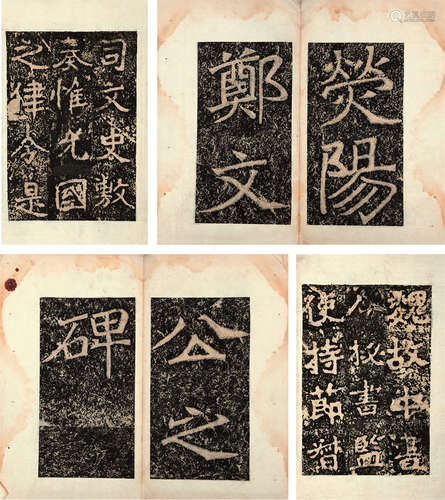 熒陽
鄭文
公之
碑
魏故中書
令秘書監
使持節督
司文史敷
奏惟允國
之律令是